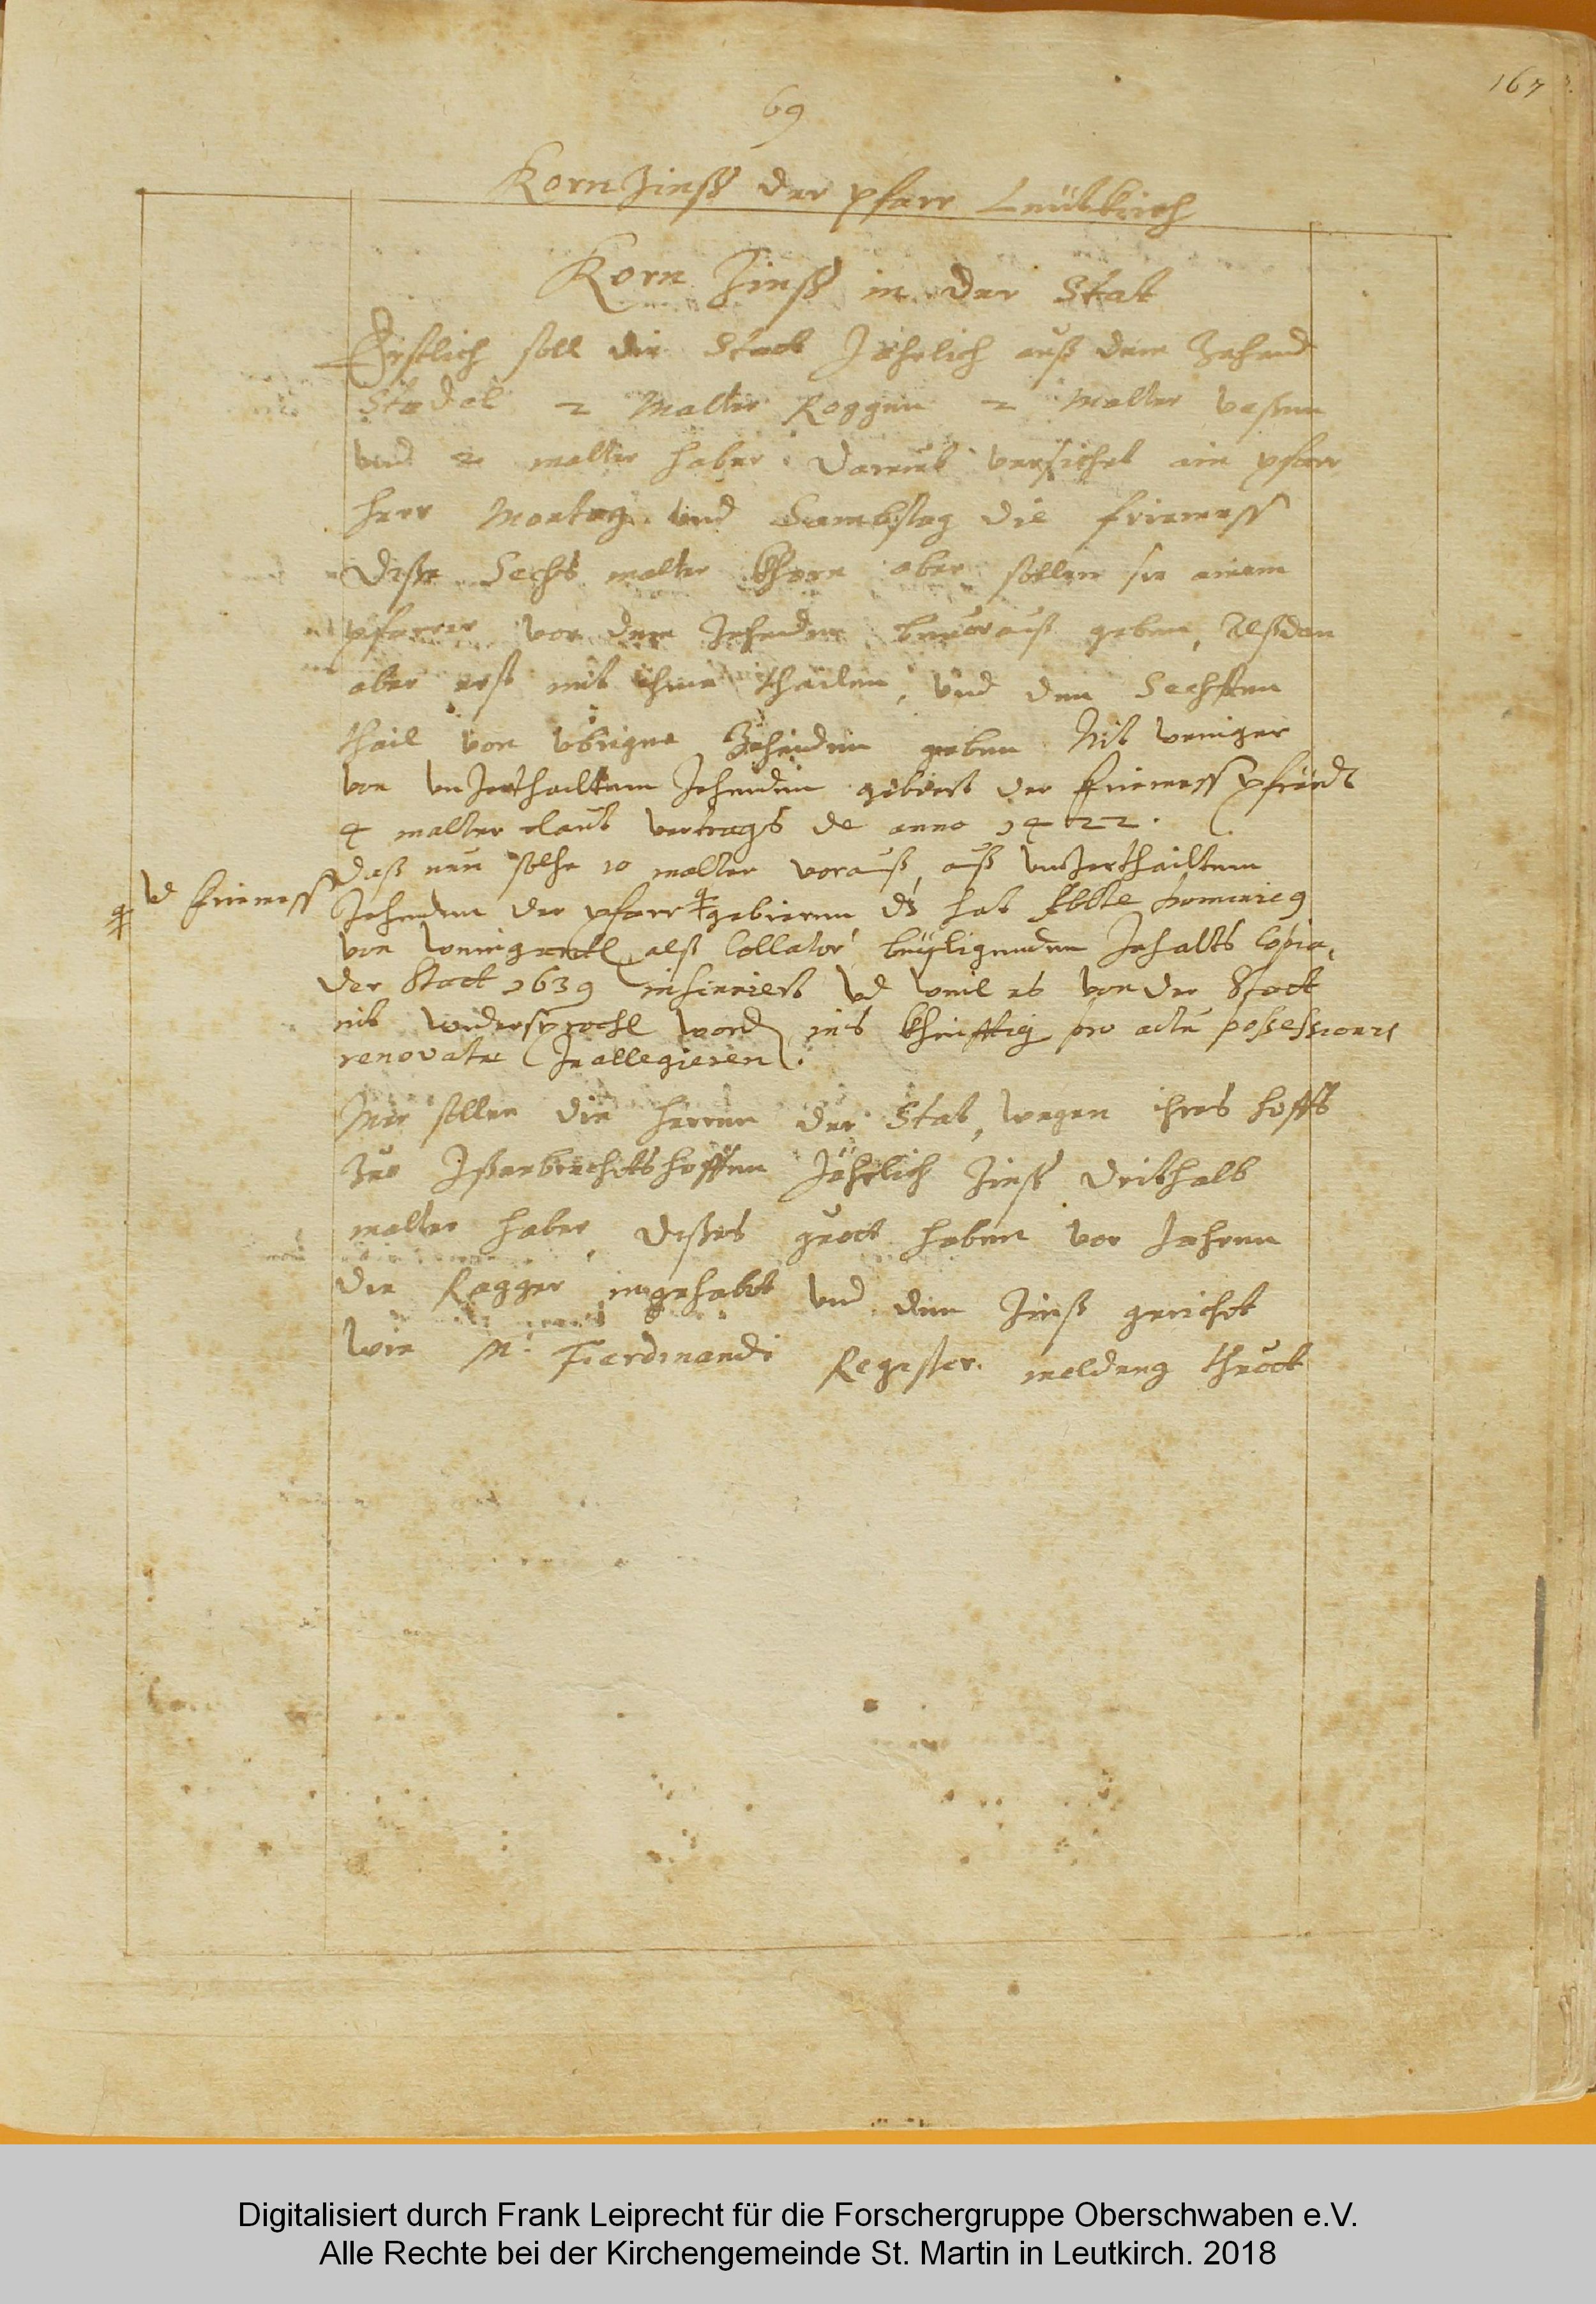 167
69
Korn Zinß der pfarr Leütkirch
Korn Zinß in der Stat
Erstlich soll die Statt Jährlich auß dem Zehend
Stadel 2 Malter Roggen 2 Malter vesen
und 2 malter haber. Darmit versicht ein pfarr
herr Montag und Sambstag die friemess
Dise Sechs malter khorn aber sollen sie ainem
pfarrer von dem Zehenden bevorauß geben, Alßdan
aber erst mit ihme thailen, und den Sechsten
thail von übrigen Zehenden geben Nit weniger
von unzerthailtem Zehenden gebiert der friemess pfriendt
4 malter laut vertrags de anno 1422.
Daß nun solhe 10 malter vorauß, auß unzerthailtem
vnd friemess
Zehenden der pfarr gebieren hat Abbte
von als Collator beyligenden Inhalts Copia,
der Statt 1639 vnd weil es von der Statt
nit widersproche word ins khünfftig pro actu possessionis
renovatae allegieren.
Mer sollen die herren der Stat, wegen ihres hoffs
Zue Jährlich Zinß drithalb
malter haber, dises guott haben vor Jahren
die Ragger ingehabt und den Zinß gericht
wie M. Fierdinandi Register meldung thuott
Digitalisiert durch Frank Leiprecht für die Forschergruppe Oberschwaben e.V.
Alle Rechte bei der Kirchengemeinde St. Martin in Leutkirch. 2018